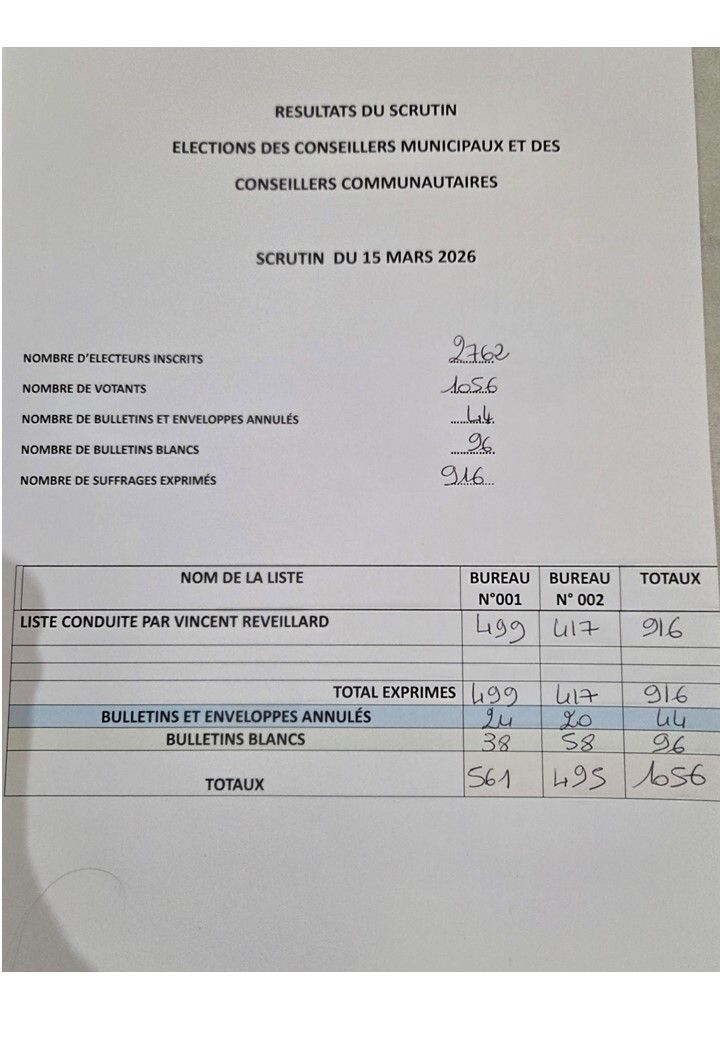 RESULTATS DU SCRUTIN
ELECTIONS DES CONSEILLERS MUNICIPAUX ET DES
CONSEILLERS COMMUNAUTAIRES
SCRUTIN DU 15 MARS 2026
NOMBRE D'ELECTEURS INSCRITS 2762
NOMBRE DE VOTANTS 1056
NOMBRE DE BULLETINS ET ENVELOPPES ANNULÉS 44
NOMBRE DE BULLETINS BLANCS 96
NOMBRE DE SUFFRAGES EXPRIMÉS 916
NOM DE LA LISTE BUREAU N°001 BUREAU N° 002 TOTAUX
LISTE CONDUITE PAR VINCENT REVEILLARD 499 417 916
TOTAL EXPRIMES 499 417 916
BULLETINS ET ENVELOPPES ANNULÉS 24 20 44
BULLETINS BLANCS 38 58 96
TOTAUX 561 495 1056